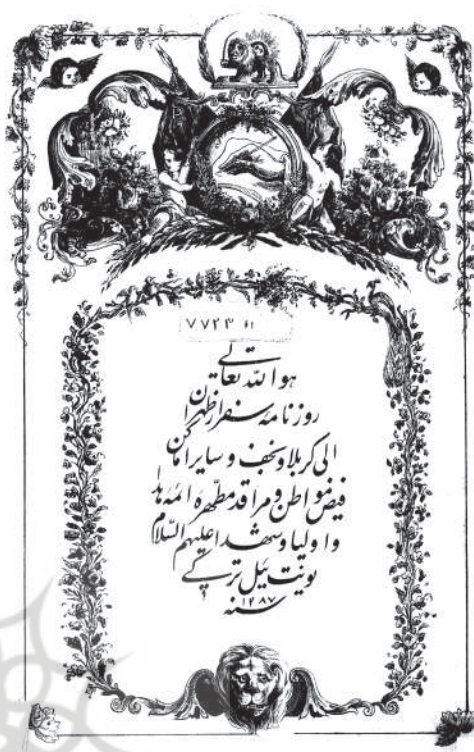 ۷۷۲۳ ۶۱
هو الله تعالی
روزنامه سفر از طهران
الی کربلا و نجف و سایر اماکن
فیض مواطن و مراقد مطهره ائمه هدا
و اولیا و شهدا علیهم السّلام
یونت ئیل ترکی
سنه ۱۲۸۷